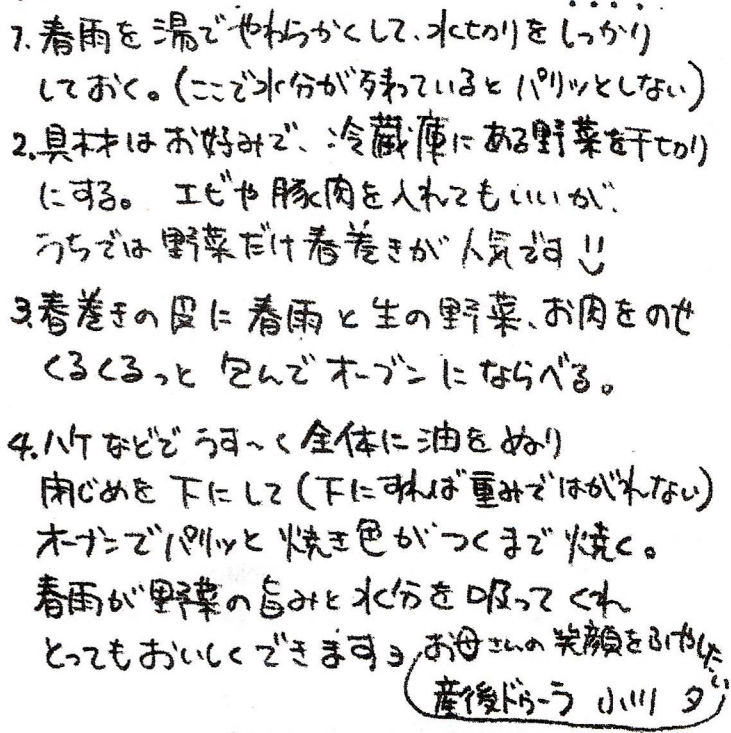 1. 春雨を湯でやわらかくして、水切りをしっかり
しておく。(ここで水分が残っているとパリッとしない)
2. 具材はお好みで、冷蔵庫にある野菜を千切り
にする。エビや豚肉を入れてもいいが、
うちでは野菜だけ春巻きが人気です!!
3. 春巻きの皮に春雨と生の野菜、お肉をのせ
くるくるっと包んでオーブンにならべる。
4. ハケなどでうす〜く全体に油をぬり
閉じめを下にして(下にすれば重みではがれない)
オーブンでパリッと焼き色がつくまで焼く。
春雨が野菜の旨みと水分を吸ってくれ
とってもおいしくできますョ
お母さんの笑顔をふやしたい
産後ドゥーラ 小川 夕